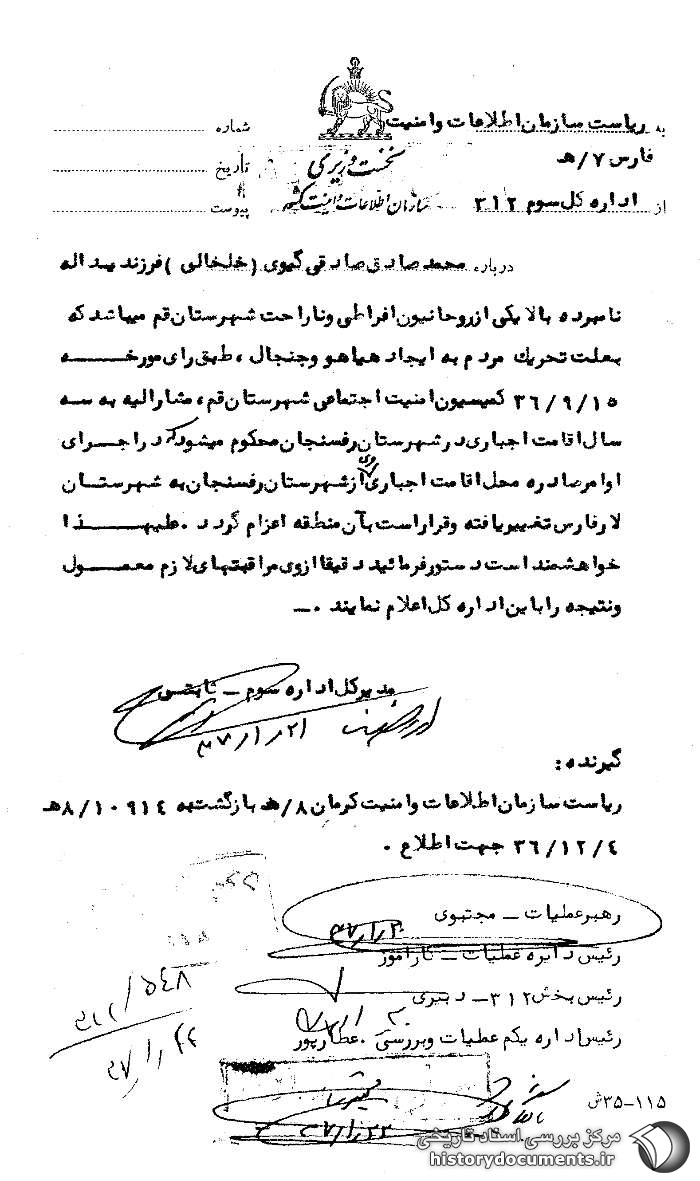 به ریاست سازمان اطلاعات و امنیت
فارس ۷/هـ
از اداره کل سوم ۳۱۲
نخست وزیری
سازمان اطلاعات و امنیت کشور
شماره
تاریخ
پیوست
درباره محمد صادق صادقی گیوی (خلخالی) فرزند یداله
نامبرده بالا یکی از روحانیون افراطی و ناراحت شهرستان قم میباشد که
بعلت تحریک مردم به ایجاد هیاهو و جنجال، طبق رای مورخه
۳۶/۹/۱۵ کمیسیون امنیت اجتماعی شهرستان قم، مشارالیه به سه
سال اقامت اجباری در شهرستان رفسنجان محکوم میشود که در اجرای
اوامر صادره محل اقامت اجباری وی از شهرستان رفسنجان به شهرستان
لار فارس تغییر یافته و قرار است بآن منطقه اعزام گردد. علیهذا
خواهشمند است دستور فرمائید دقیقا از وی مراقبتهای لازم معمول
و نتیجه را باین اداره کل اعلام نمایند.ـ
مدیر کل اداره سوم ـ ثابتی
۳۷/۱/۲۱
گیرنده:
ریاست سازمان اطلاعات و امنیت کرمان ۸/هـ بازگشت به ۸/۱۰۹۱۴هـ
۳۶/۱۲/۴ جهت اطلاع.
رهبر عملیات ـ مجتبوی
رئیس دایره عملیات ـ کارآموز
رئیس بخش ۳۱۲ـ دبیری
رئیس اداره یکم عملیات و بررسی. عطارپور
۳۱۲/۵۴۸
۳۷/۱/۲۲
۳۷/۱/۲۲
۱۱۵-۳۵ش
مرکز بررسی اسناد تاریخی
historydocuments.ir